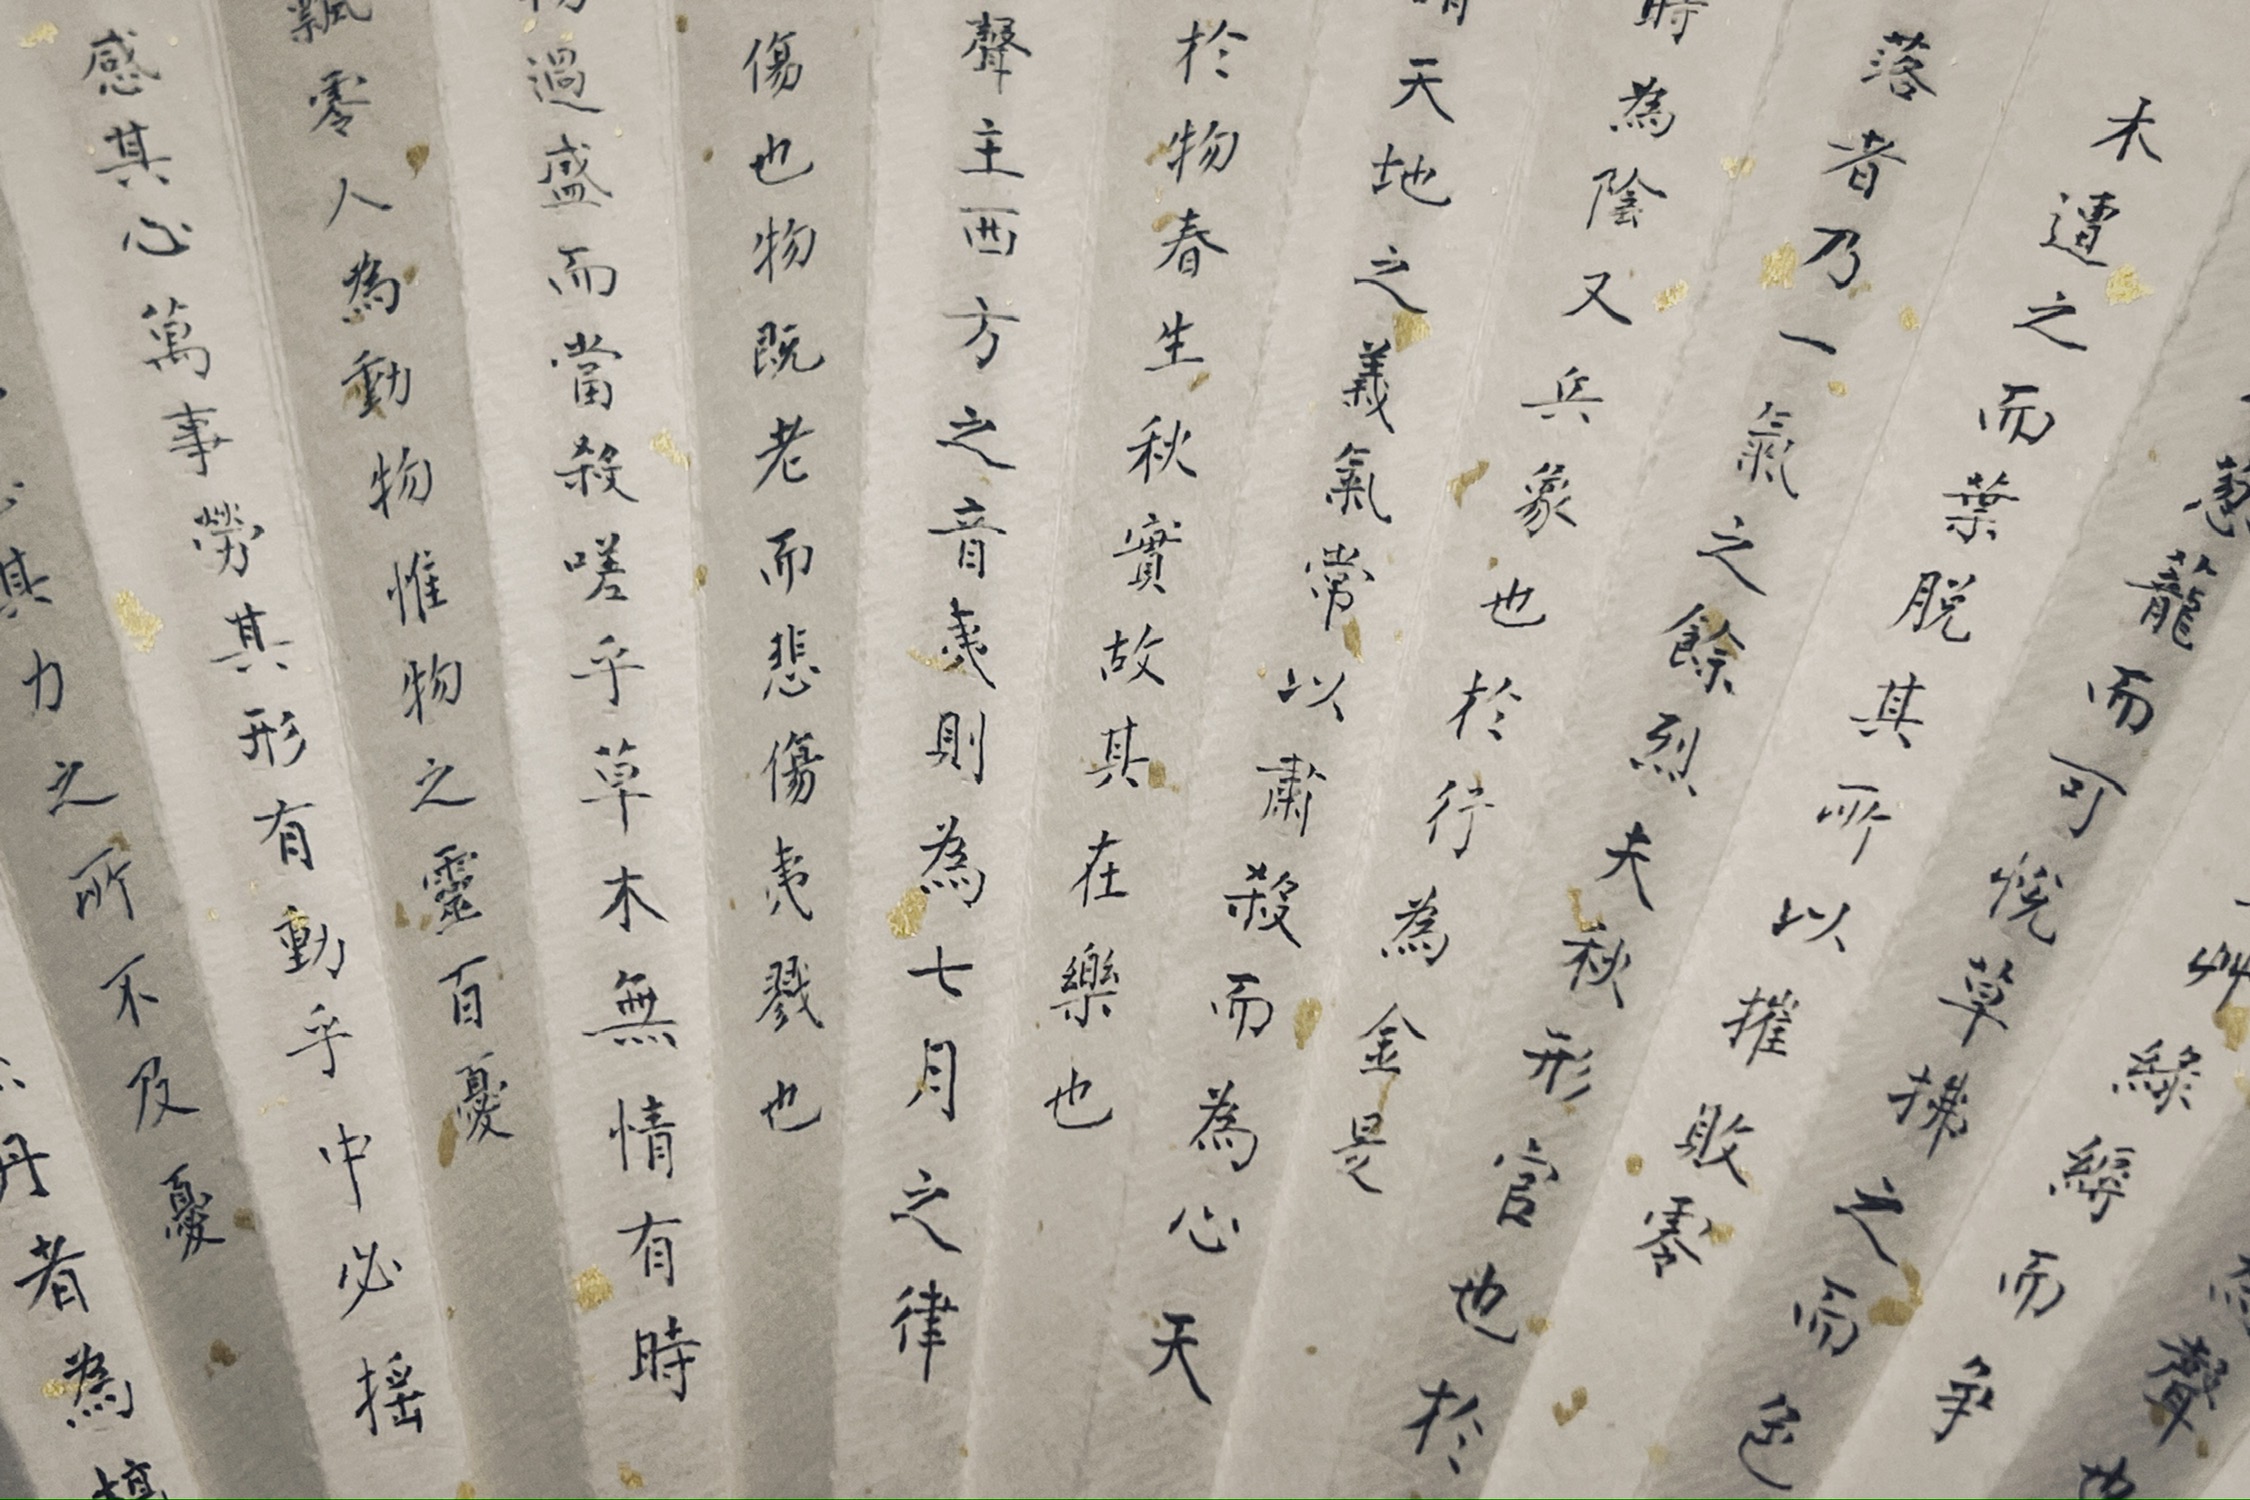 聲也
艸綠縟而爭
蔥蘢而可悅草拂之而色
木遭之而葉脫其所以摧敗零
落者乃一氣之餘烈夫秋形官也於
時為陰又兵象也於行為金是
天地之義氣常以肅殺而為心天
於物春生秋實故其在樂也
聲主西方之音夷則為七月之律
傷也物既老而悲傷夷戮也
物過盛而當殺嗟乎草木無情有時
飄零人為動物惟物之靈百憂
感其心萬事勞其形有動乎中必搖
其力之所不及憂
丹者為槁